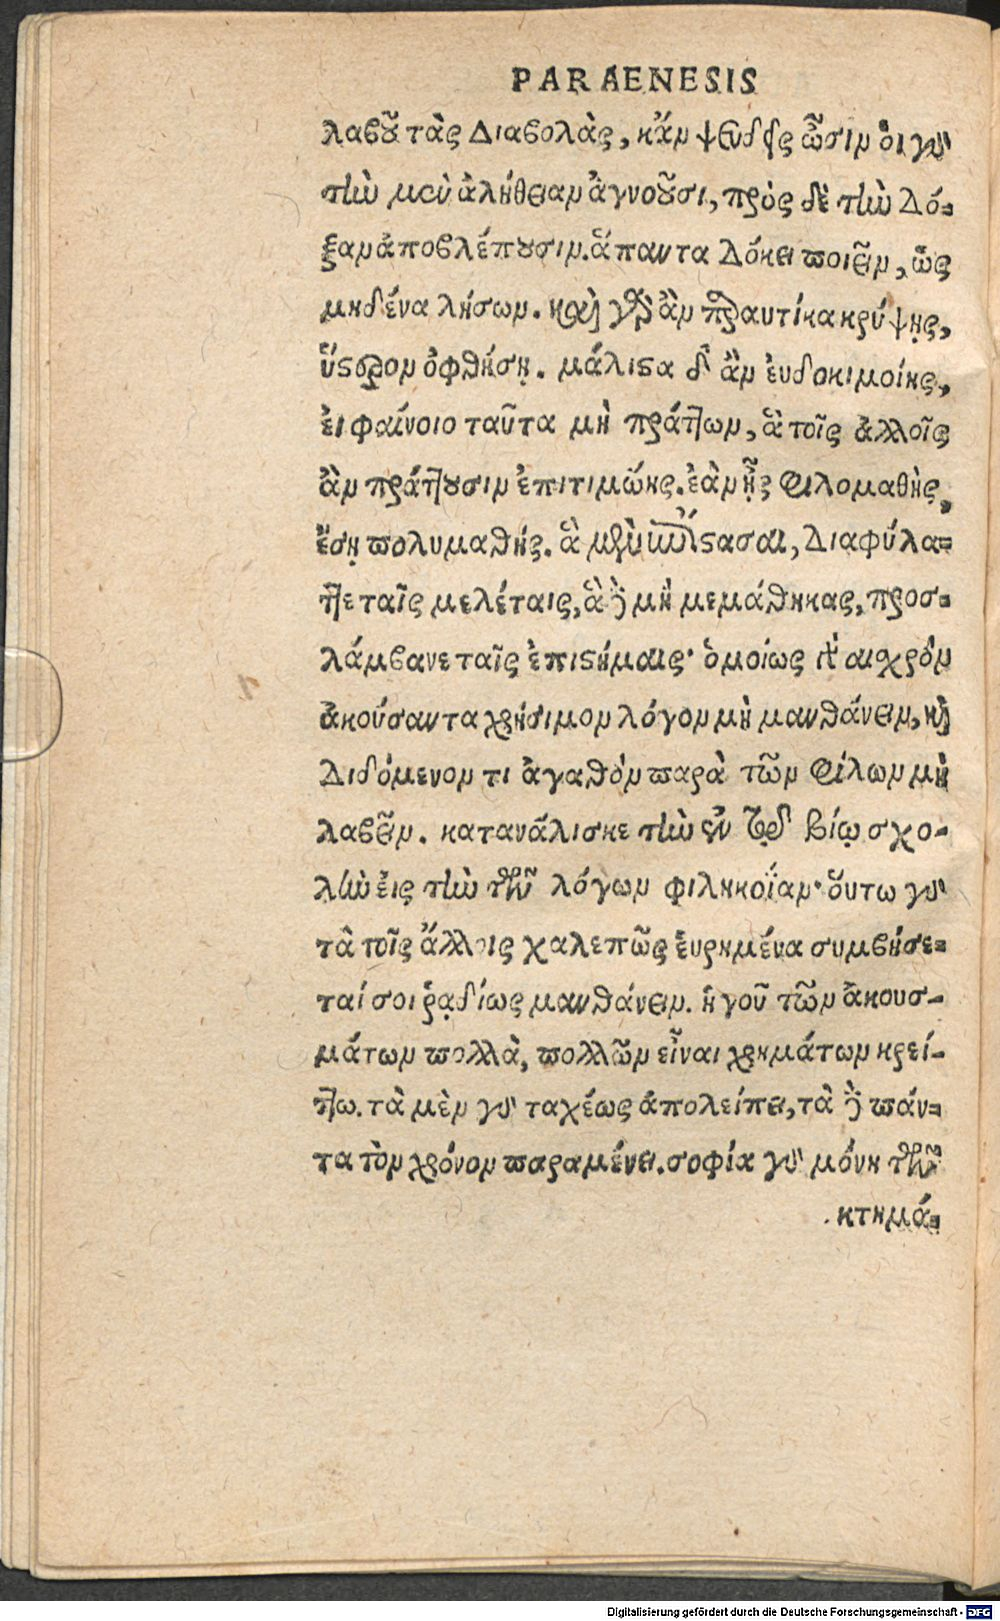 PARAENESIS
λαβοῦ τὰς διαβολὰς, κἂν ψευδεῖς ὦσιν. ὁι γὰρ
τὴν μὲν ἀλήθειαν ἀγνοοῦσι, πρὸς δὲ τὴν δό-
ξαν ἀποβλέπουσιν. ἅπαντα δόκει ποιεῖν, ὡς
μηδένα λήσων. καὶ γὰρ ἂν παραυτίκα κρύψῃς,
ὕστερον ὀφθήσῃ. μάλιστα δ' ἂν ἐυδοκιμοίης,
ἐι φαίνοιο ταῦτα μὴ πράττων, ἃ τοῖς ἀλλοῖς
ἂν πράττουσιν ἐπιτιμώῃς. ἐὰν ᾖς φιλομαθὴς,
ἔσῃ πολυμαθής. ἃ μὲν ἐπίστασαι, διαφύλα-
ττε ταῖς μελέταις, ἃ δὲ μὴ μεμάθηκας, προσ-
λάμβανε ταῖς ἐπιστήμαις· ὁμοίως γὰρ αισχρὸν
ἀκούσαντα χρήσιμον λόγον μὴ μανθάνειν, καὶ
διδόμενον τι ἀγαθὸν παρὰ τῶν φίλων μὴ
λαβεῖν. κατανάλισκε τὴν ἐν τῷ βίῳ σχο-
λὴν ἐις τὴν τῶν λόγων φιληκοΐαν· ὅυτω γὰρ
τὰ τοῖς ἄλλοις χαλεπῶς ἑυρημένα συμβήσε-
ταί σοι ῥᾳδίως μανθάνειν. ἡγοῦ τῶν ἀκουσ-
μάτων πολλὰ, πολλῶν εἶναι χρημάτων κρεί-
ττω. τὰ μὲν γὰρ ταχέως ἀπολείπει, τὰ δὲ πάν-
τα τὸν χρόνον παραμένει. σοφία γὰρ μόνη τῶν
κτημά-
Digitalisierung gefördert durch die Deutsche Forschungsgemeinschaft - DFG